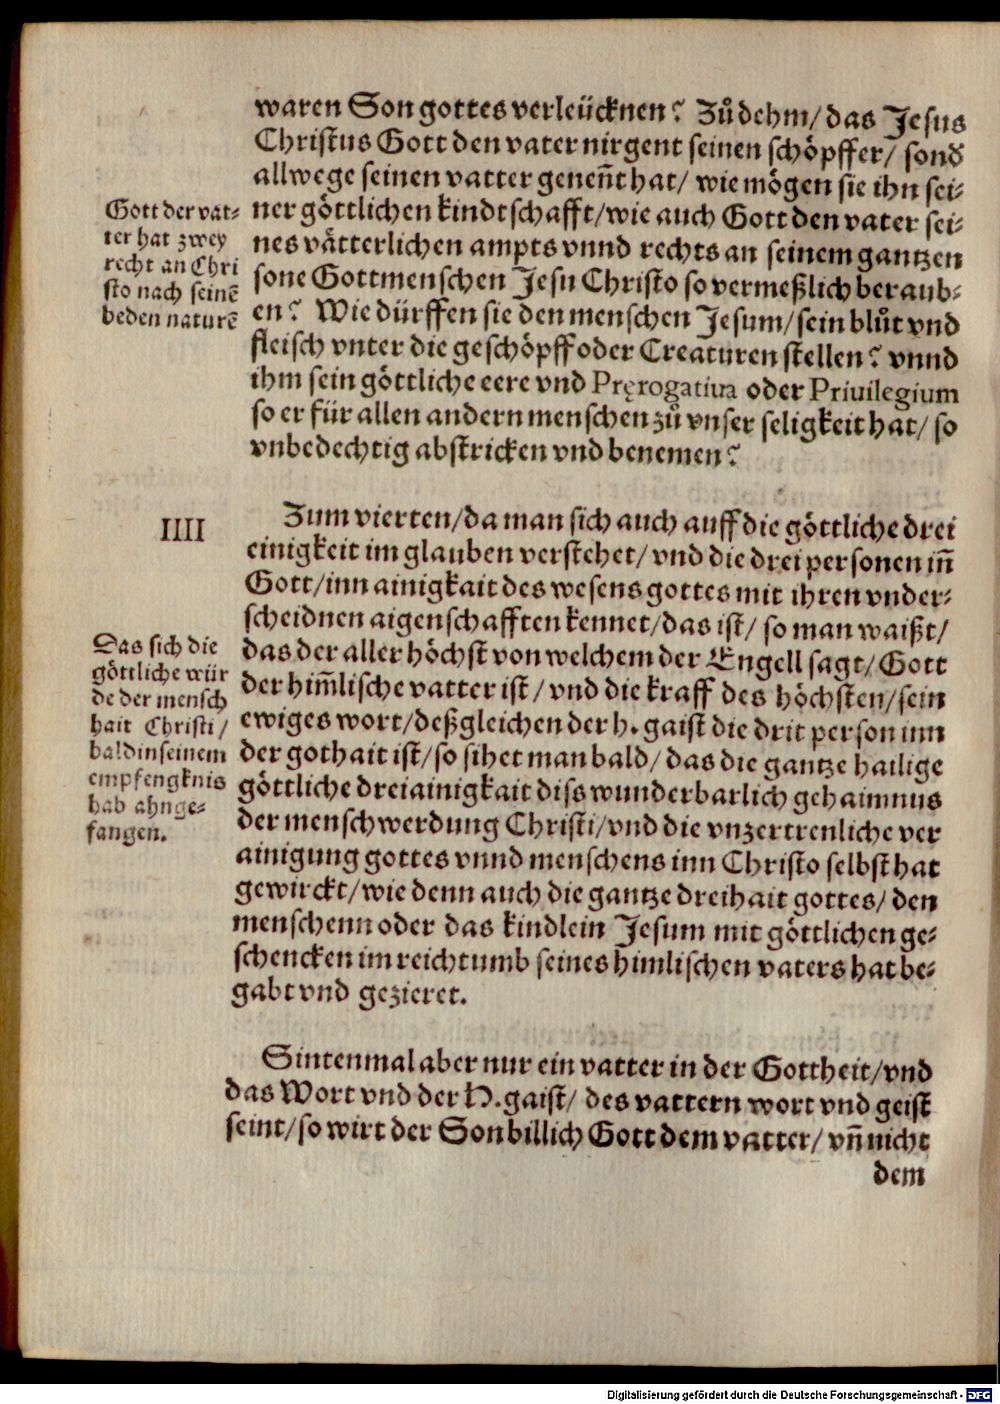 waren Son gottes verleücknen? Zůdehm/ das Jesus
Christus Gott den vater nirgent seinen schöpffer/ sond
allwege seinen vatter geneñt hat/ wie mögen sie ihn sei-
ner göttlichen kindtschafft/ wie auch Gott den vater sei-
nes vätterlichen ampts vnnd rechts an seinem gantzen
sone Gottmenschen Jesu Christo so vermeßlich beraub-
en? Wie dürffen sie den menschen Jesum/ sein blůt vnd
fleisch vnter die geschöpff oder Creaturen stellen? vnnd
ihm sein göttliche eere vnd Pręrogatiua oder Priuilegium
so er für allen andern menschen zů vnser seligkeit hat/ so
vnbedechtig abstricken vnd benemen?
Gott der vat-
ter hat zwey
recht an Chri
sto nach seinẽ
beden naturẽ
IIII
Zum vierten/ da man sich auch auff die göttliche drei
einigkeit im glauben verstehet/ vnd die drei personen iñ
Gott/ inn ainigkait des wesens gottes mit ihren vnder-
scheidnen aigenschafften kennet/ das ist/ so man waißt/
das der aller höchst von welchem der Engell sagt/ Gott
der him̃lische vatter ist/ vnd die kraff des höchsten/ sein
ewiges wort/ deßgleichen der h. gaist die drit person inn
der gothait ist/ so sihet man bald/ das die gantze hailige
göttliche dreiainigkait diss wunderbarlich gehaimnus
der menschwerdung Christi/ vnd die vnzertrenliche ver
ainigung gottes vnnd menschens inn Christo selbst hat
gewirckt/ wie denn auch die gantze dreihait gottes/ den
menschenn oder das kindlein Jesum mit göttlichen ge-
schencken im reichtumb seines himlischen vaters hat be-
gabt vnd gezieret.
Das sich die
göttliche wür
de der mensch
hait Christi/
bald in seinem
empfengknis
hab ahnge-
fangen.
Sintenmal aber nur ein vatter in der Gottheit/ vnd
das Wort vnd der H. gaist/ des vattern wort vnd geist
seint/ so wirt der Son billich Gott dem vatter/ vñ nicht
dem
Digitalisierung gefördert durch die Deutsche Forschungsgemeinschaft - DFG